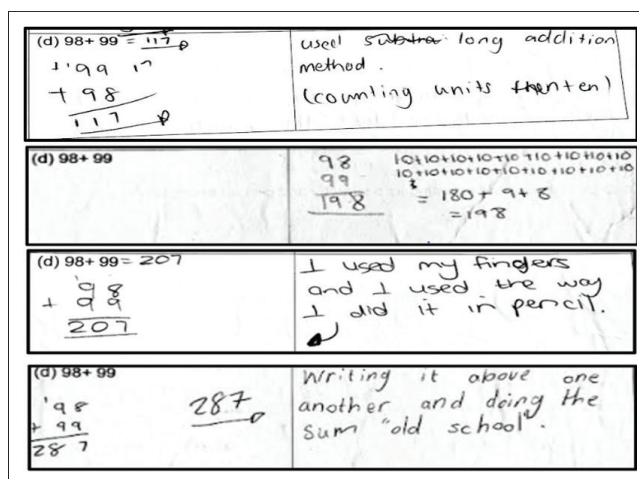 (d) 98+ 99 = 117
+ 99 17
+ 98
117
used subtra long addition
method.
(counting units then ten)
(d) 98+ 99
98
99
198
10+10+10+10+10+10+10+10+10
10+10+10+10+10+10+10+10+10
= 180 + 9 + 8
= 198
(d) 98+ 99 = 207
1
98
+ 99
207
I used my fingers
and I used the way
I did it in pencil.
(d) 98+ 99
1
98
+ 99
287
287
Writing it above one
another and doing the
sum "old school".